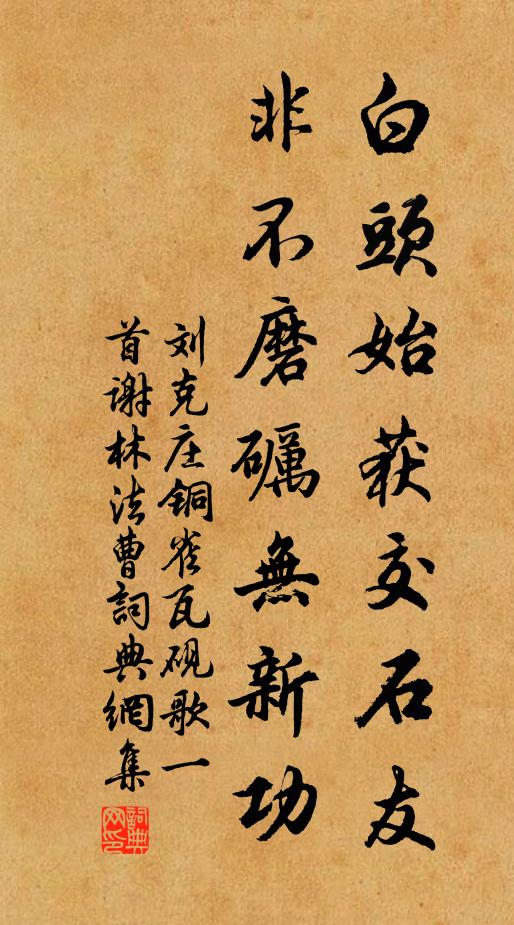 白頭始获交石友
非不磨礪無新功
刘克庄铜雀瓦砚歌一
首谢林法曹詞典網集
詞典
网印